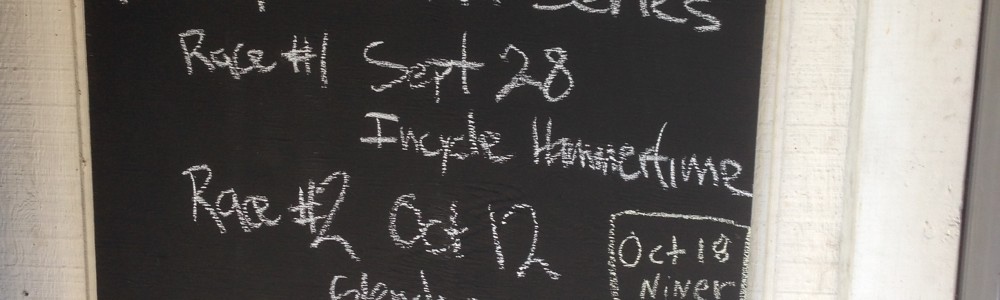 Series
Race #1 Sept 28
Incycle Hammertime
Race #2 Oct 12
Oct 18
Niner